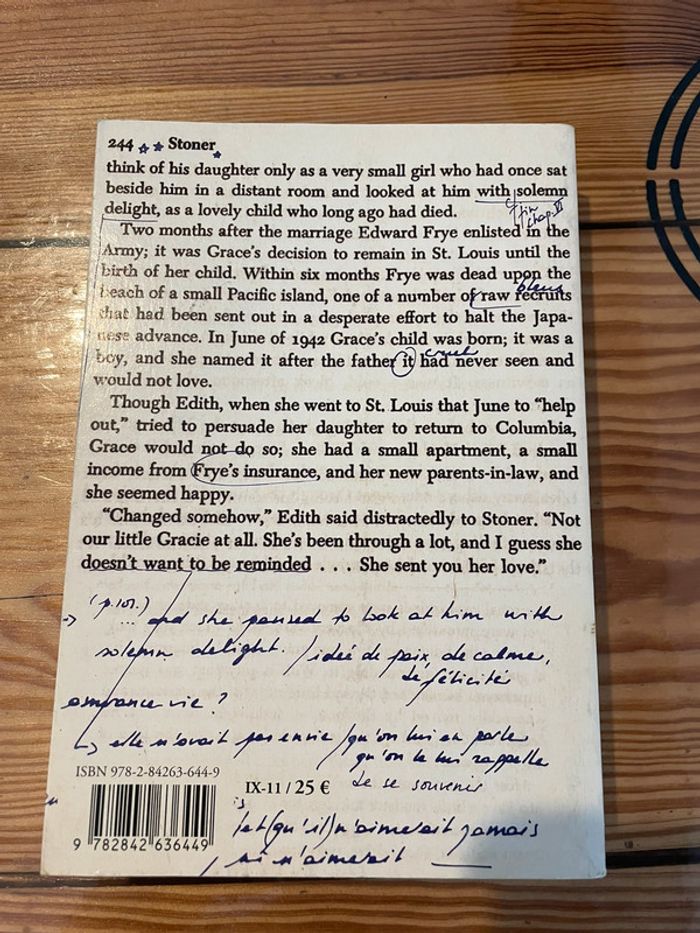 244 Stoner
think of his daughter only as a very small girl who had once sat
beside him in a distant room and looked at him with solemn
delight, as a lovely child who long ago had died.
fin
chap. VI
Two months after the marriage Edward Frye enlisted in the
Army; it was Grace's decision to remain in St. Louis until the
birth of her child. Within six months Frye was dead upon the
bleus
beach of a small Pacific island, one of a number of raw recruits
that had been sent out in a desperate effort to halt the Japa-
nese advance. In June of 1942 Grace's child was born; it was a
boy, and she named it after the father it had never seen and
would not love.
Though Edith, when she went to St. Louis that June to "help
out," tried to persuade her daughter to return to Columbia,
Grace would not do so; she had a small apartment, a small
income from Frye's insurance, and her new parents-in-law, and
she seemed happy.
"Changed somehow," Edith said distractedly to Stoner. "Not
our little Gracie at all. She's been through a lot, and I guess she
doesn't want to be reminded . . . She sent you her love."
(p. 101.)
... and she paused to look at him with
solemn delight. / idée de paix, de calme,
de félicité
assurance vie ?
elle n'avait pas envie / qu'on lui en parle
qu'on le lui rappelle
de se souvenir
ISBN 978-2-84263-644-9
IX-11 / 25 €
/et (qu'il) n'aimerait jamais
/ ni n'aimerait
9 782842 636449